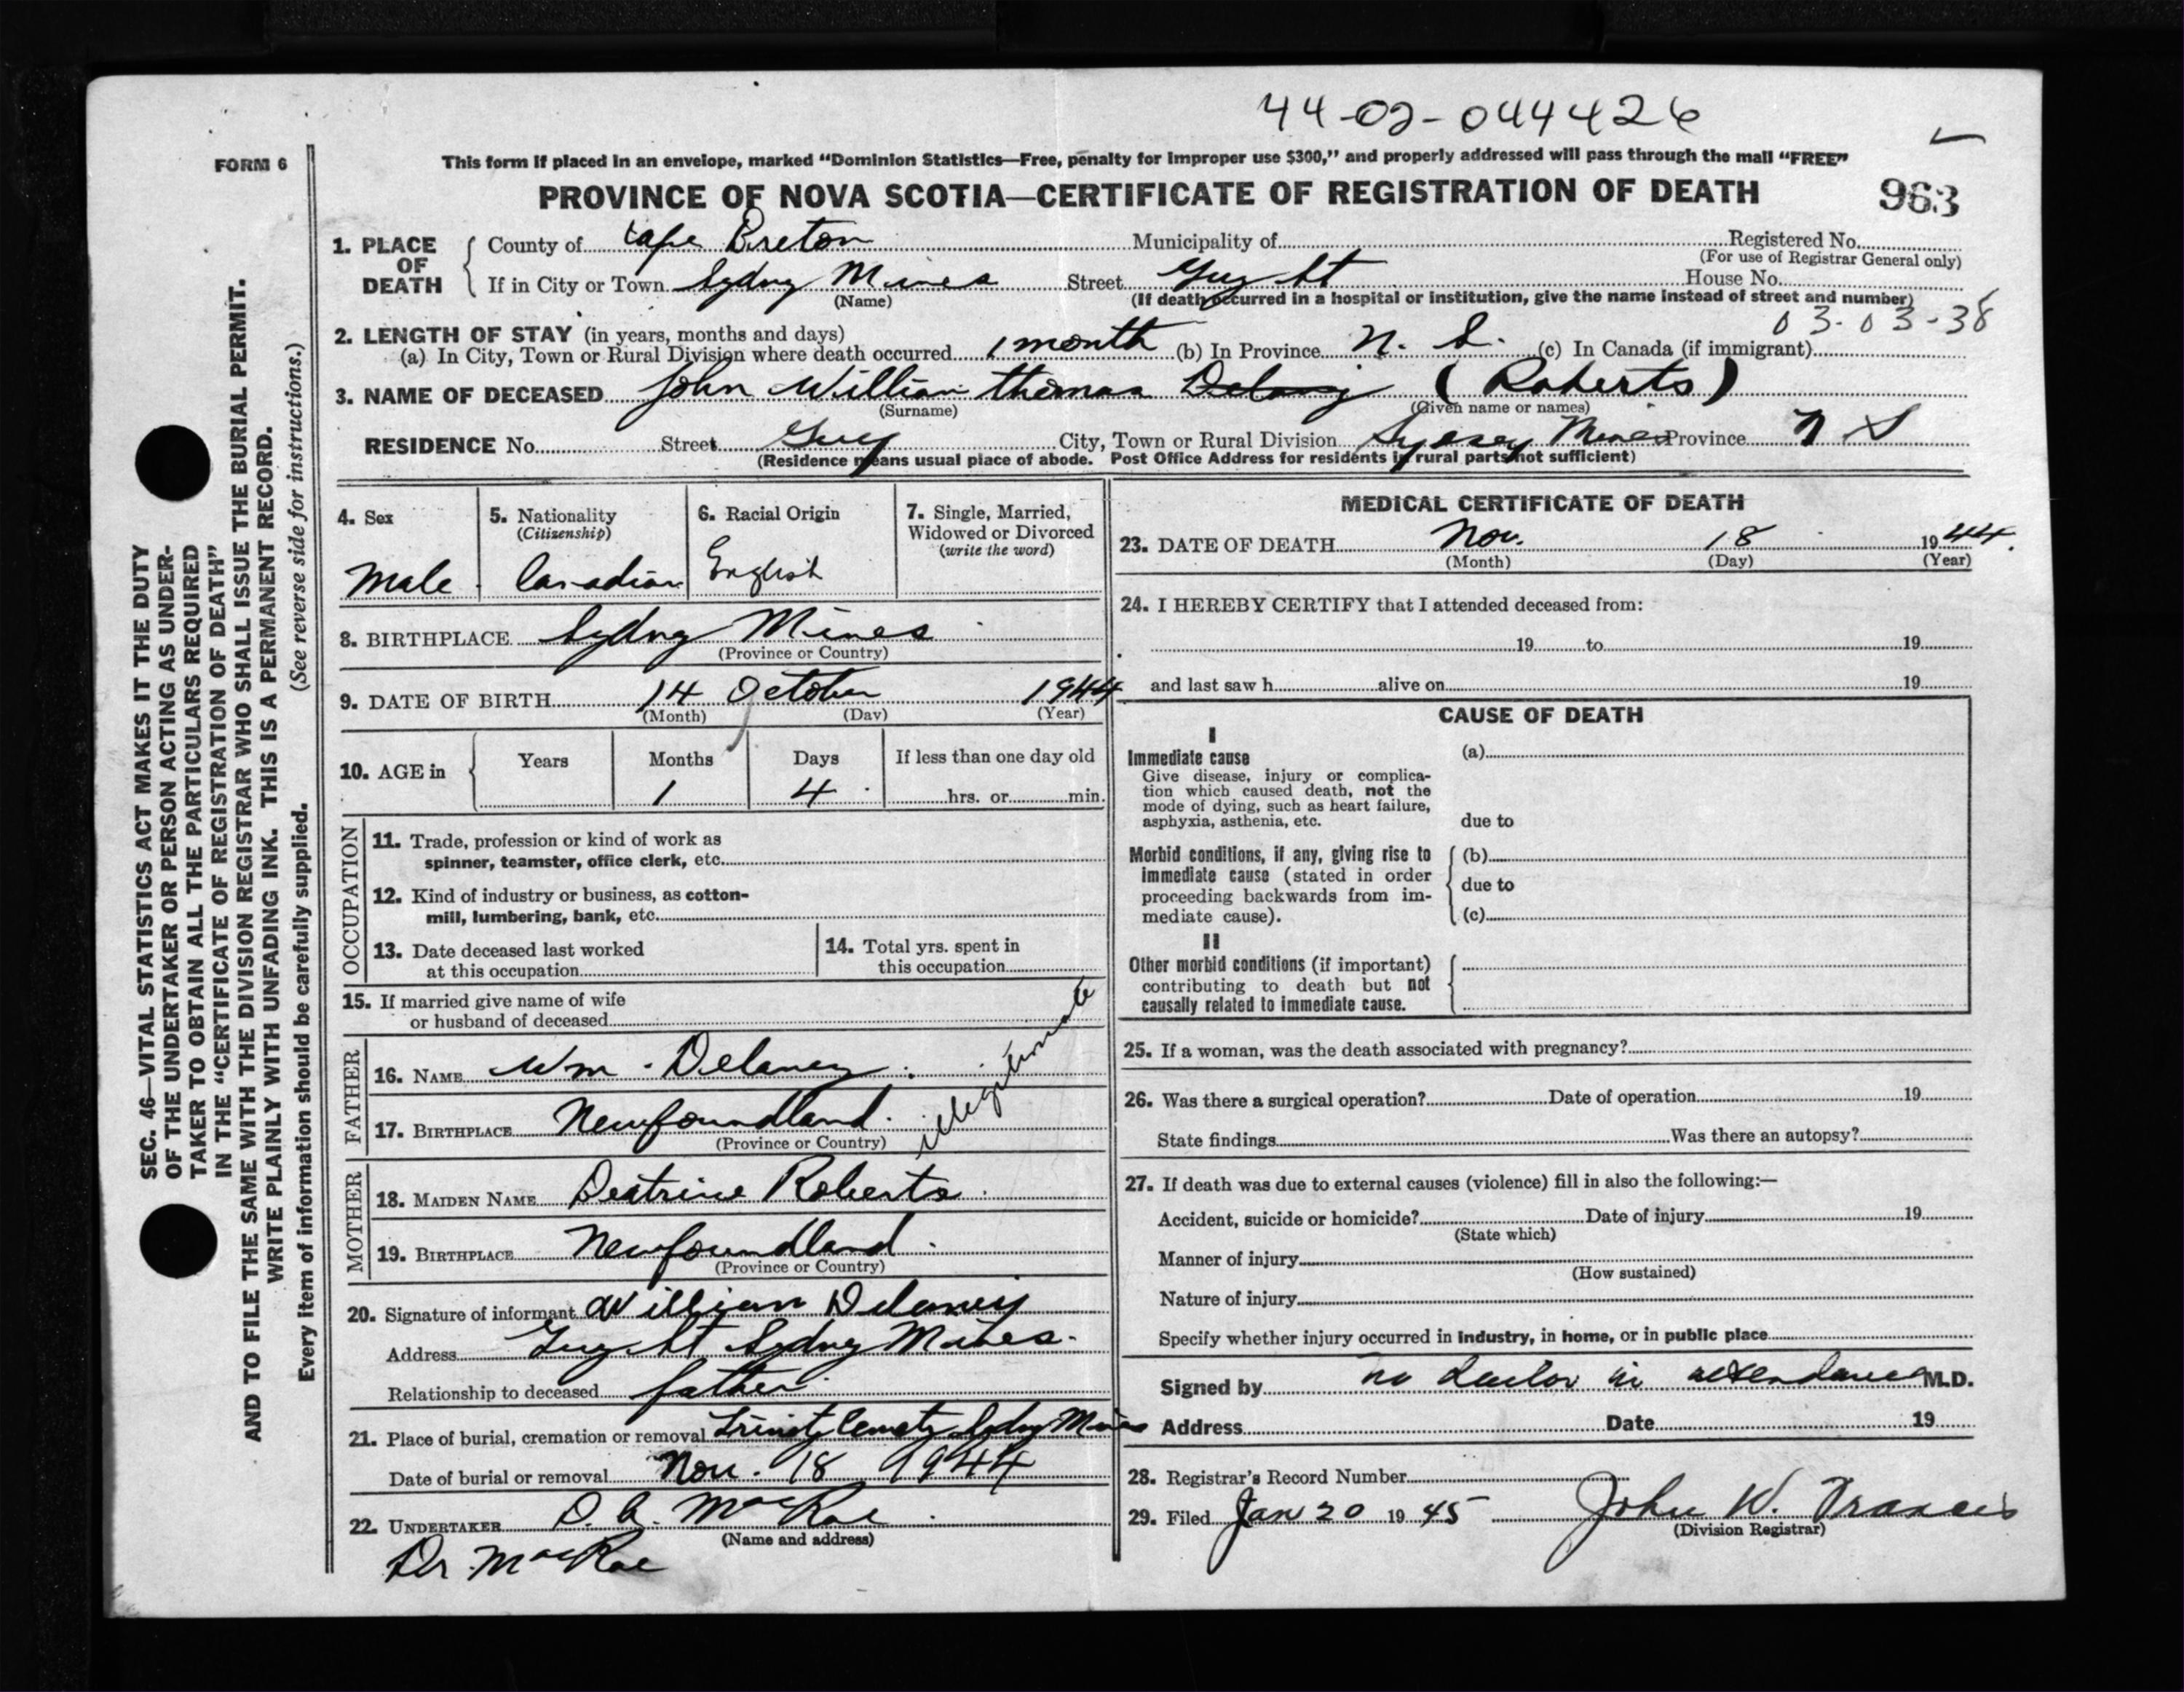 44-02-044426
FORM 6
This form if placed in an envelope, marked “Dominion Statistics—Free, penalty for improper use $300,” and properly addressed will pass through the mail “FREE”
PROVINCE OF NOVA SCOTIA—CERTIFICATE OF REGISTRATION OF DEATH
963
1. PLACE OF DEATH
County of Cape Breton Municipality of Registered No.
(For use of Registrar General only)
If in City or Town Sydney Mines Street Guy St House No.
(Name) (If death occurred in a hospital or institution, give the name instead of street and number)
03-03-38
2. LENGTH OF STAY (in years, months and days)
(a) In City, Town or Rural Division where death occurred 1 month (b) In Province N. S. (c) In Canada (if immigrant)
3. NAME OF DECEASED John William Thomas Delaney (Roberts)
(Surname) (Given name or names)
RESIDENCE No. Street Guy City, Town or Rural Division Sydney Mines Province N S
(Residence means usual place of abode. Post Office Address for residents in rural parts not sufficient)
4. Sex
Male
5. Nationality
(Citizenship)
Canadian
6. Racial Origin
English
7. Single, Married,
Widowed or Divorced
(write the word)
8. BIRTHPLACE Sydney Mines
(Province or Country)
9. DATE OF BIRTH 14 October 1944
(Month) (Day) (Year)
10. AGE in
Years Months Days If less than one day old
1 4 hrs. or min.
OCCUPATION
11. Trade, profession or kind of work as
spinner, teamster, office clerk, etc.
12. Kind of industry or business, as cotton-
mill, lumbering, bank, etc.
13. Date deceased last worked
at this occupation
14. Total yrs. spent in
this occupation
15. If married give name of wife
or husband of deceased
FATHER
16. NAME Wm. Delaney
17. BIRTHPLACE Newfoundland.
(Province or Country)
illegitimate
MOTHER
18. MAIDEN NAME Beatrice Roberts
19. BIRTHPLACE Newfoundland.
(Province or Country)
20. Signature of informant William Delaney
Address Guy St Sydney Mines.
Relationship to deceased father
21. Place of burial, cremation or removal Trinity Cemety Sydney Mines
Date of burial or removal Nov. 18 1944
22. UNDERTAKER D. A. MacRae
(Name and address)
Dr. MacRae
MEDICAL CERTIFICATE OF DEATH
23. DATE OF DEATH Nov. 18 1944.
(Month) (Day) (Year)
24. I HEREBY CERTIFY that I attended deceased from:
19 to 19
and last saw h alive on 19
CAUSE OF DEATH
I
Immediate cause
Give disease, injury or complica-
tion which caused death, not the
mode of dying, such as heart failure,
asphyxia, asthenia, etc.
(a)
due to
Morbid conditions, if any, giving rise to
immediate cause (stated in order
proceeding backwards from im-
mediate cause).
(b)
due to
(c)
II
Other morbid conditions (if important)
contributing to death but not
causally related to immediate cause.
25. If a woman, was the death associated with pregnancy?
26. Was there a surgical operation? Date of operation 19
State findings Was there an autopsy?
27. If death was due to external causes (violence) fill in also the following:—
Accident, suicide or homicide? Date of injury 19
(State which)
Manner of injury
(How sustained)
Nature of injury
Specify whether injury occurred in industry, in home, or in public place
Signed by no doctor in attendance M.D.
Address Date 19
28. Registrar's Record Number
29. Filed Jan 20 1945 John W. Francis
(Division Registrar)
SEC. 46—VITAL STATISTICS ACT MAKES IT THE DUTY
OF THE UNDERTAKER OR PERSON ACTING AS UNDER-
TAKER TO OBTAIN ALL THE PARTICULARS REQUIRED
IN THE “CERTIFICATE OF REGISTRATION OF DEATH”
AND TO FILE THE SAME WITH THE DIVISION REGISTRAR WHO SHALL ISSUE THE BURIAL PERMIT.
WRITE PLAINLY WITH UNFADING INK. THIS IS A PERMANENT RECORD.
Every item of information should be carefully supplied. (See reverse side for instructions.)